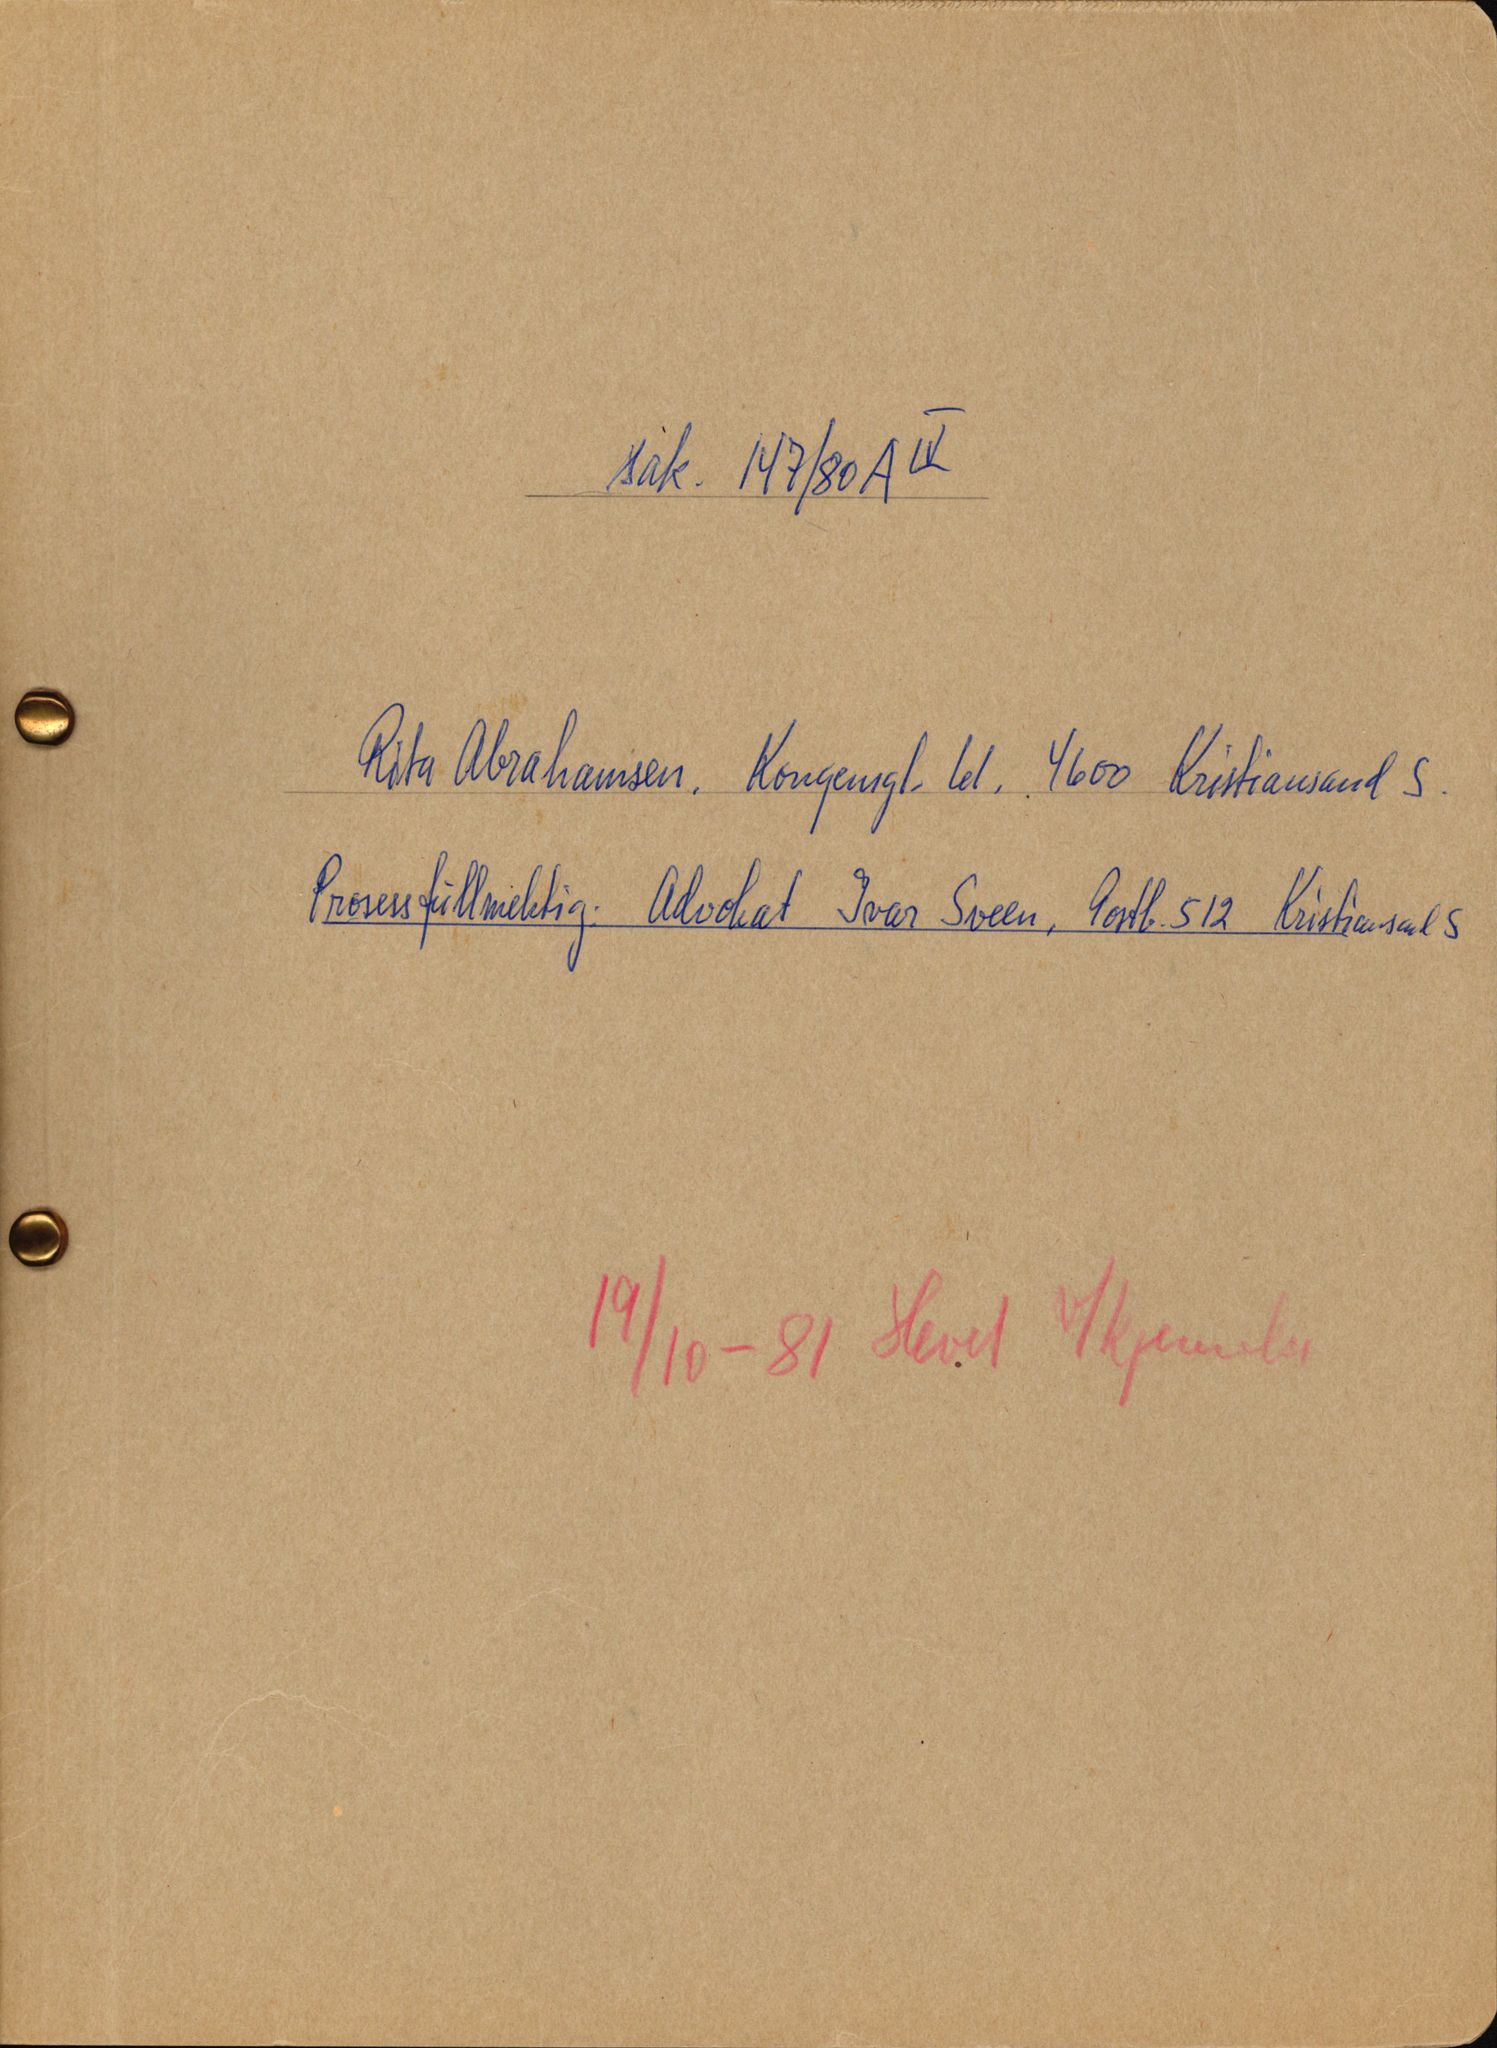 sak. 147/80 A IV
Rita Abrahamsen. Kongensgt. 61. 4600 Kristiansand S.
Prosessfullmektig: Advokat Ivar Sveen, Postb. 512 Kristiansand S
19/10-81 Hevet v/kjennelse